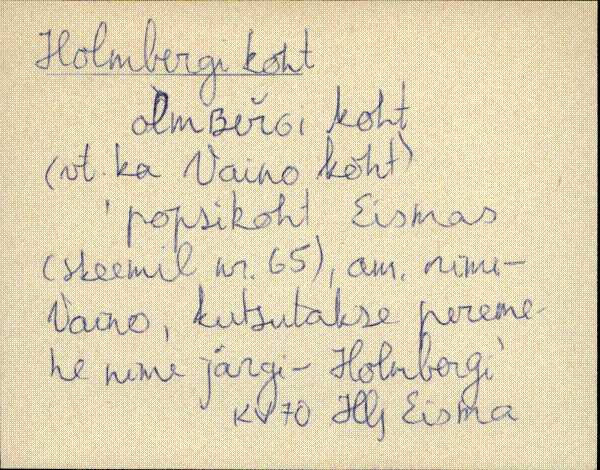 Holmbergi koht
òlmBeřGi koht
(vt. ka Vaino koht)
'popsikoht Eismas
(skeemil nr. 65), am. nimi-
Vaino, kutsutakse pereme-
he nime järgi- Holmbergi
KV 70 HlJ Eisma